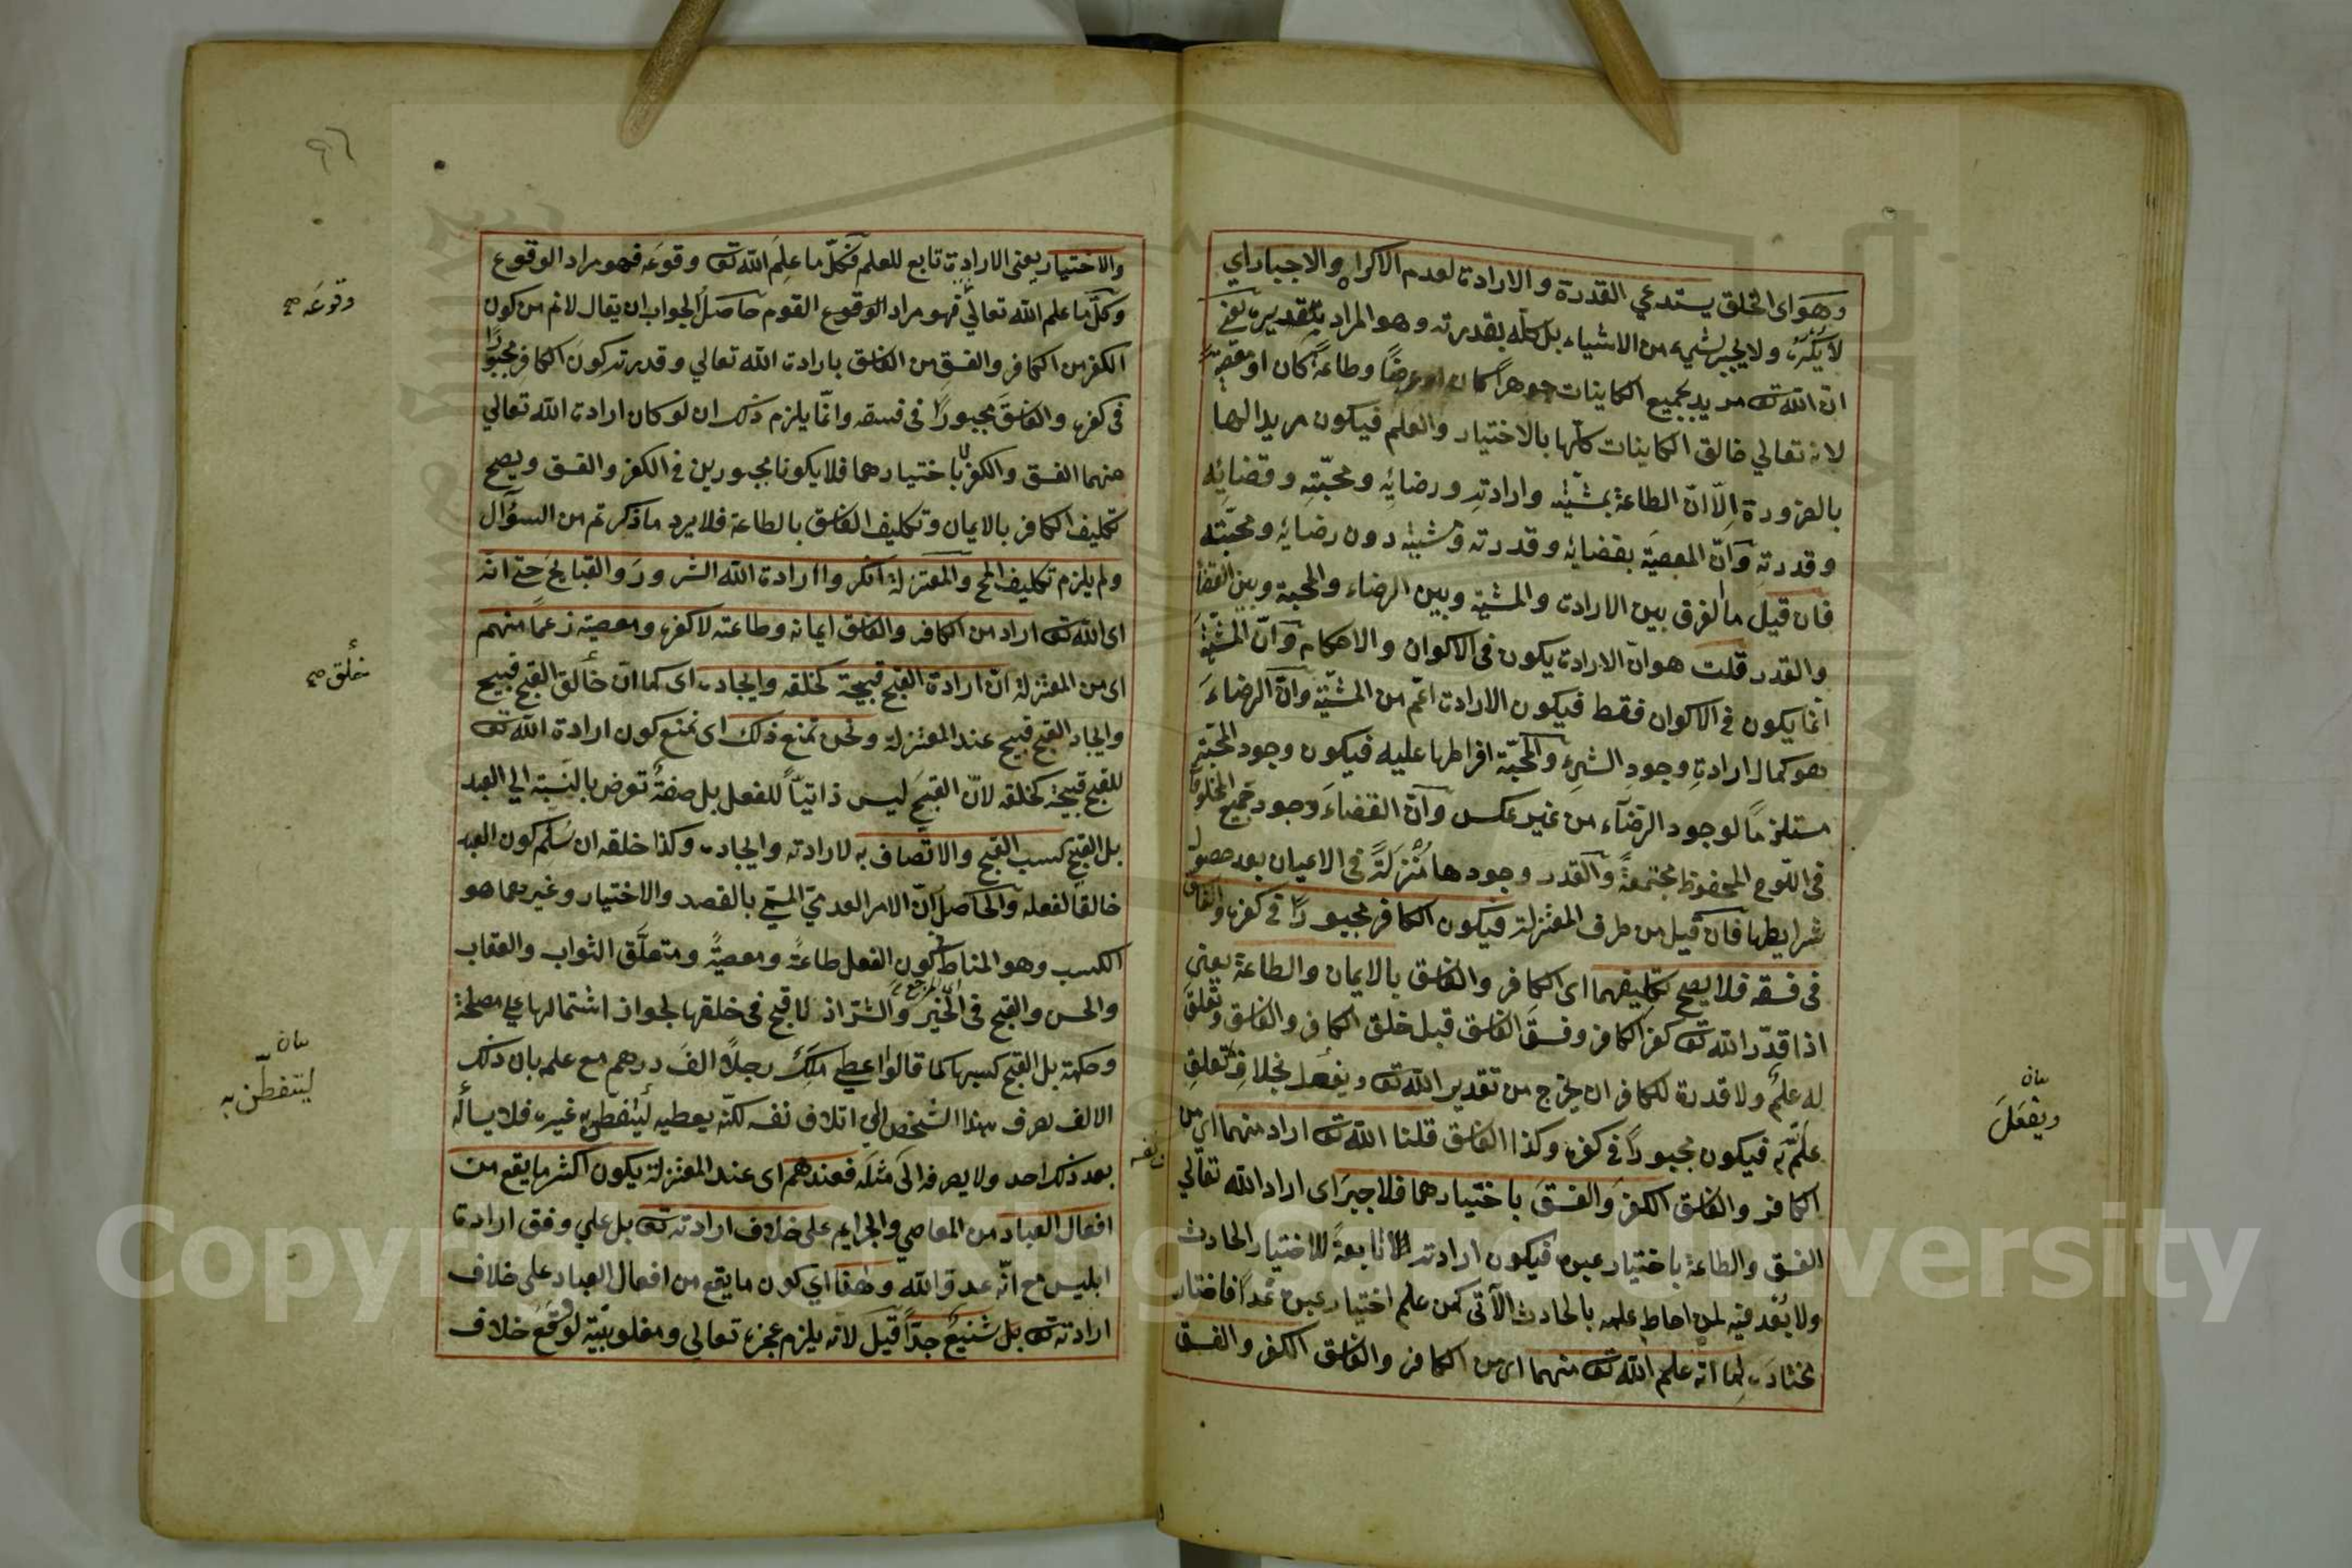 وهو اى الخلق يستدعي القدرة والارادة لعدم الاكراه والاجبار اي
لا يكره ولا يجبر لشيء من الاشياء بل كله بقدرته وهو المراد بتقديره يعنى
ان الله تع مريد بجميع الكاينات جوهراً كان او عرضاً وطاعةً كان او معصيةً
لانه تعالي خالق الكاينات كلّها بالاختيار والعلم فيكون مريدا لها
بالضرورة اِلّا انّ الطاعة بمشيّته وارادتِه ورضايِه ومحبّتِه وقضايِه
وقدرتِه وَانّ المعصيَة بقضايه وقدرته ومشيته دون رضايه ومحبّته
فان قيل ما الفرق بين الارادة والمشية وبين الرضاء والمحبة وبين القضا
والقدر قلت هو انّ الارادة يكون فى الاكوان والاحكام وَانّ المشيّة
انّما يكون في الاكوان فقط فيكون الارادة اعمّ من المشيّة وانّ الرضاءَ
هو كمال ارادةِ وجودِ الشيءِ والمحبّة افراطها عليه فيكون وجود المحبّةِ
مستلزمًا لوجود الرضاء من غير عكس وانّ القضاءَ وجود جميع المخلوقا
فى اللوح المحفوظ مجتمعةً والقدر وجودها مُنْزَلَةً فى الاعيان بعد حصول
شرايطها فان قيل من طرف المعتزلة فيكون الكافر مجبورًا في كفره والفاسق
فى فسقه فلا يصح تكليفهما اى الكافر والفاسق بالايمان والطاعة يعني
اذا قدّر الله تع كفر الكافر وفسقَ الفاسق قبل خلق الكافر والفاسق وتعلق
له علمٌ ولا قدرة للكافر ان يخرج من تقدير الله تع ويفعل بخلاف تعلقِ
علمه فيكون مجبورًا في كفره وكذا الفاسق قلنا الله تع اراد منهما اى من
الكافر والفاسق الكفرَ والفسقَ باختيارهما فلا جبرَ اى اراد الله تعالي
الفسق والطاعة باختيار عبده فيكون ارادته تابعةً للاختيار الحادث
ولا بُعْد فيه لمن احاط علمه بالحادث الآتى كمن علم اختيار عبده غدًا فاختار
مختاره لِما انه علم الله تع منهما اى من الكافر والفاسق الكفر والفسق
بيان
ويفعَلَ
والاختيار يعنى الارادة تابع للعلم فكلّ ما علِمَ الله تع وقوعَه فهو مراد الوقوع
وكلّ ما علم الله تعاليٰ فهو مراد الوقوع القوم حاصلُ الجواب ان يقال لانم من كون
الكفر من الكافر والفسقِ من الفاسق بارادة الله تعالي وقدرته كونَ الكافر مجبورًا
فى كفره والفاسقَ مجبورًا فى فسقه وانّما يلزم ذلك ان لو كان ارادة الله تعالي
منهما الفسق والكفر لا باختيارهما فلا يكونا مجبورين في الكفر والفسق ويصح
تكليف الكافر بالايمان وتكليف الفاسق بالطاعة فلا يرد ما ذكرتم من السؤال
ولم يلزم تكليف المح والمعتزلة انكروا ارادة الله الشرورَ والقبايحَ حتى انه
اى الله تع اراد من الكافر والفاسق ايمانه وطاعته لا كفره ومعصيته زعمًا منهم
اى من المعتزلة انّ ارادة القبح قبيحة كخلقه وايجاده اى كما ان خالق القبح قبيح
وايجاد القبح قبيح عند المعتزلة ونحن نمنع ذلك اى نمنع كون ارادة الله تع
للقبح قبيحة كخلقه لانّ القبحَ ليس ذاتيّاً للفعل بل صفةٌ تعرض بالنسبة الي العبد
بل القبح كسب القبح والاتّصاف به لا ارادته وايجاده وكذا خلقه ان سُلّم كون العبد
خالقاً لفعله والحاصل انّ الامر العدميّ المسمّي بالقصد والاختيار وغيرهما هو
الكسب وهو المناط كون الفعل طاعةً ومعصيةً ومتعلَّق الثواب والعقاب
والحسن والقبح فى الخير والشرّ اذ لا قبح فى خلقها لجواز اشتمالها علي مصلحة
وحكمة بل القبح كسبها كما قالوا اعطي مَلِكٌ رجلاً الفَ درهم مع علمه بان ذلك
الالف يعرف هذا الشخص الي اتلاف نفسه لكنّه يعطيه ليتفطن به غيره فلا يسأله
بعد ذلك احد ولا يصرفه الَى مثله فعندهم اى عند المعتزلة يكون اكثر ما يقع من
افعال العباد من المعاصي والجرايم على خلاف ارادته تع بل علي وفق ارادة
ابليس مع انّه عدوّ الله وهذا اي كون ما يقع من افعال العباد على خلاف
ارادته تع بل شنيعٌ جدّاً قيل لانه يلزم عجزه تعالي ومغلوبيّته لوقوع خلاف
٩٦
وقوعَه صح
خلق صح
بيان
ليتفطّن به